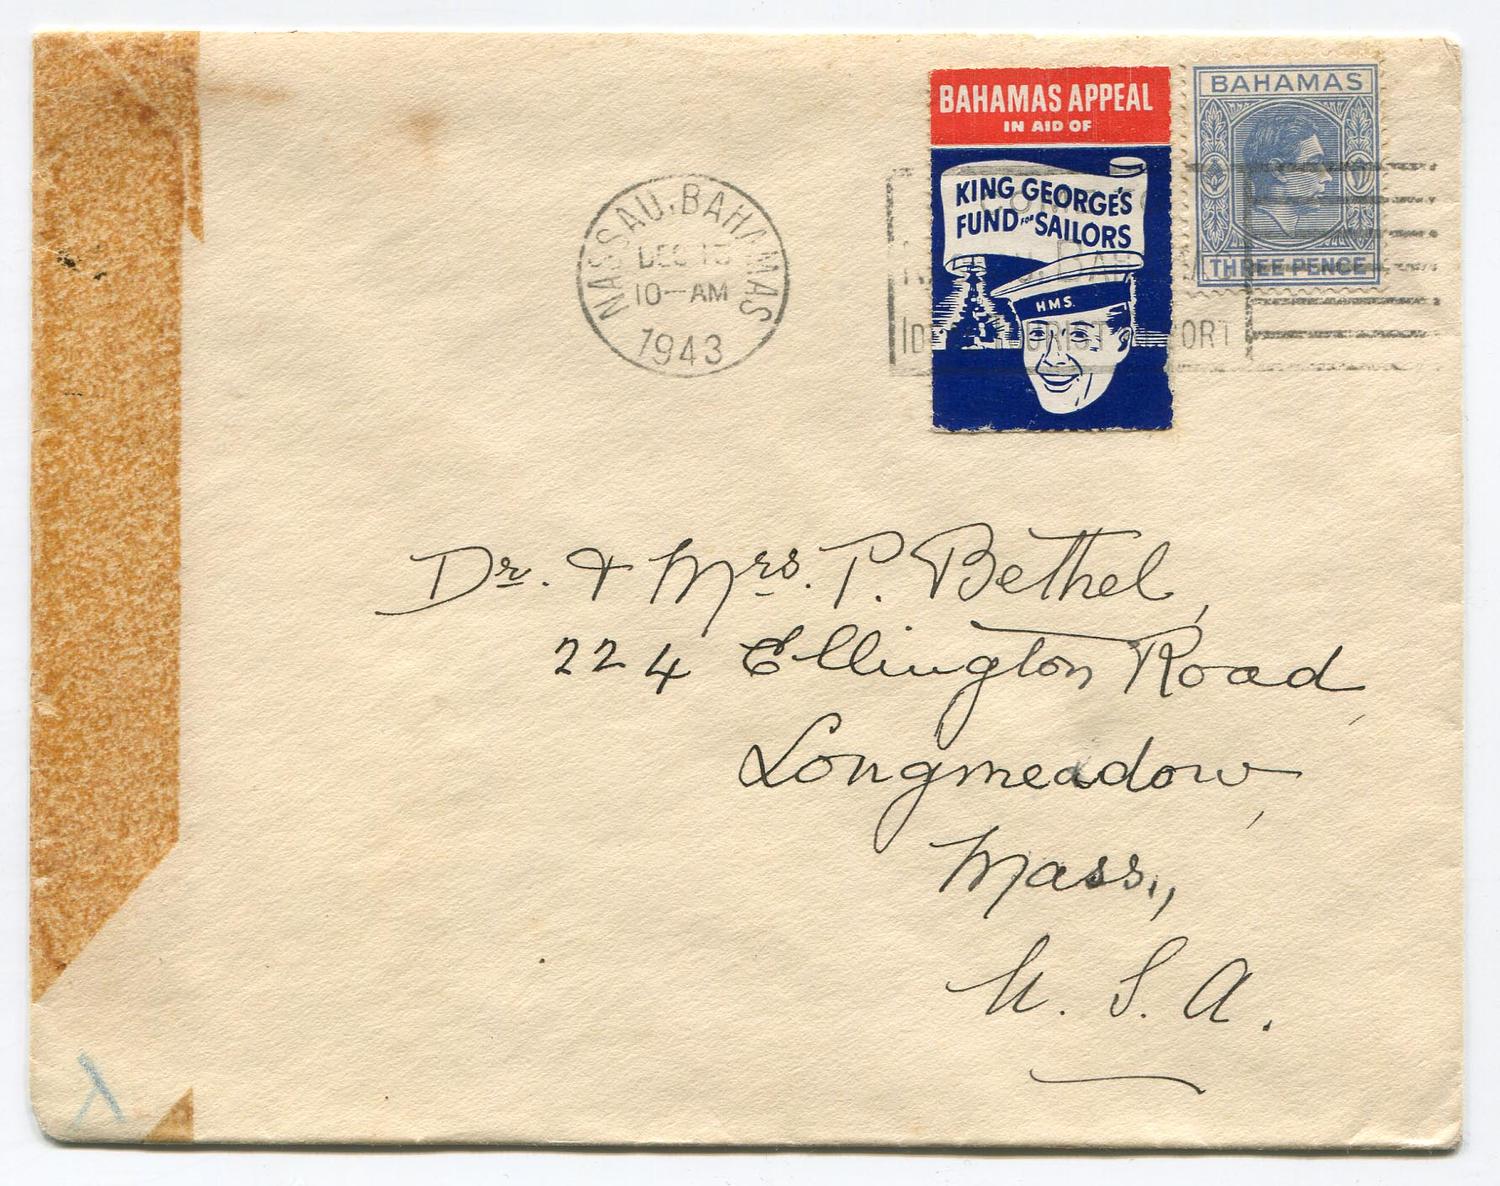 BAHAMAS APPEAL
IN AID OF
KING GEORGE'S
FUND FOR SAILORS
H.M.S.
BAHAMAS
THREE PENCE
NASSAU, BAHAMAS
DEC
10—AM
1943
TOURIST
Dr. & Mrs. P. Bethel,
224 Ellington Road,
Longmeadow,
Mass.,
U. S. A.